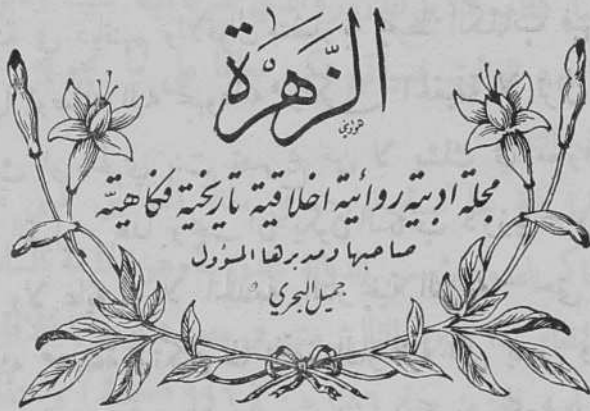 الزَّهْرَة
مجلة ادبية روائية اخلاقية تاريخية فكاهية
صاحبها ومديرها المسؤول
جميل البحري